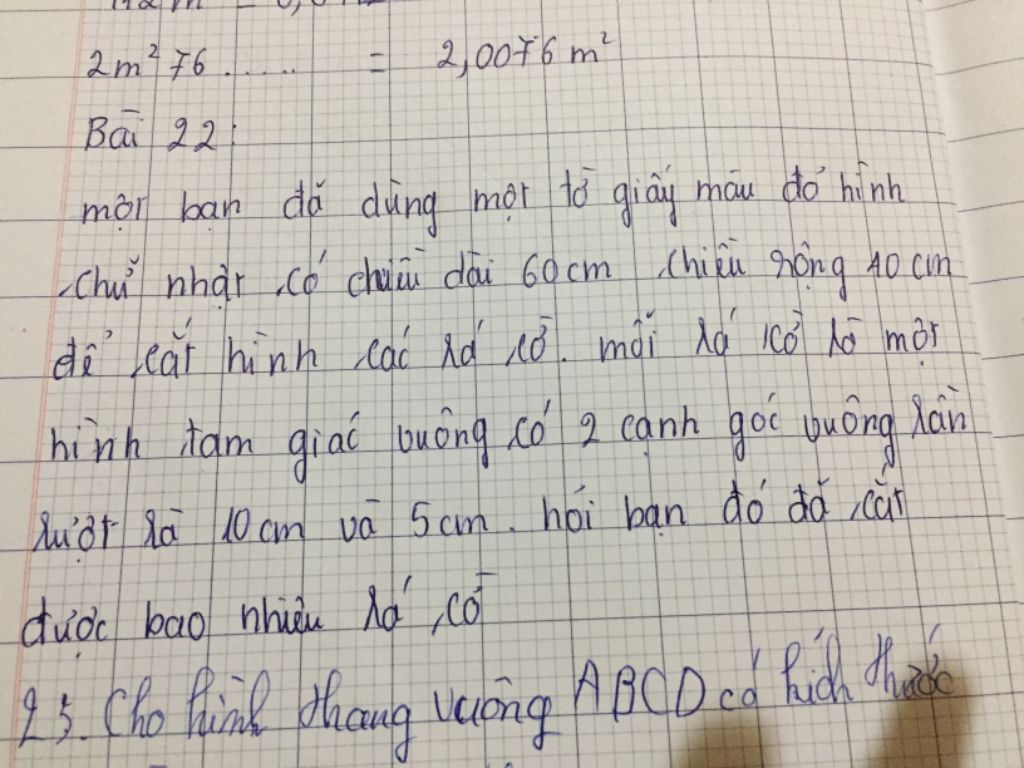 2m² 76 ...... = 2,0076 m²
Bài 22:
một bạn đã dùng một tờ giấy màu đỏ hình
chữ nhật có chiều dài 60cm chiều rộng 40 cm
để cắt hình các lá cờ. mỗi lá cờ là một
hình tam giác vuông có 2 cạnh góc vuông lần
lượt là 10 cm và 5 cm. hỏi bạn đó đã cắt
được bao nhiêu lá cờ
23. Cho hình thang vuông ABCD có kích thước